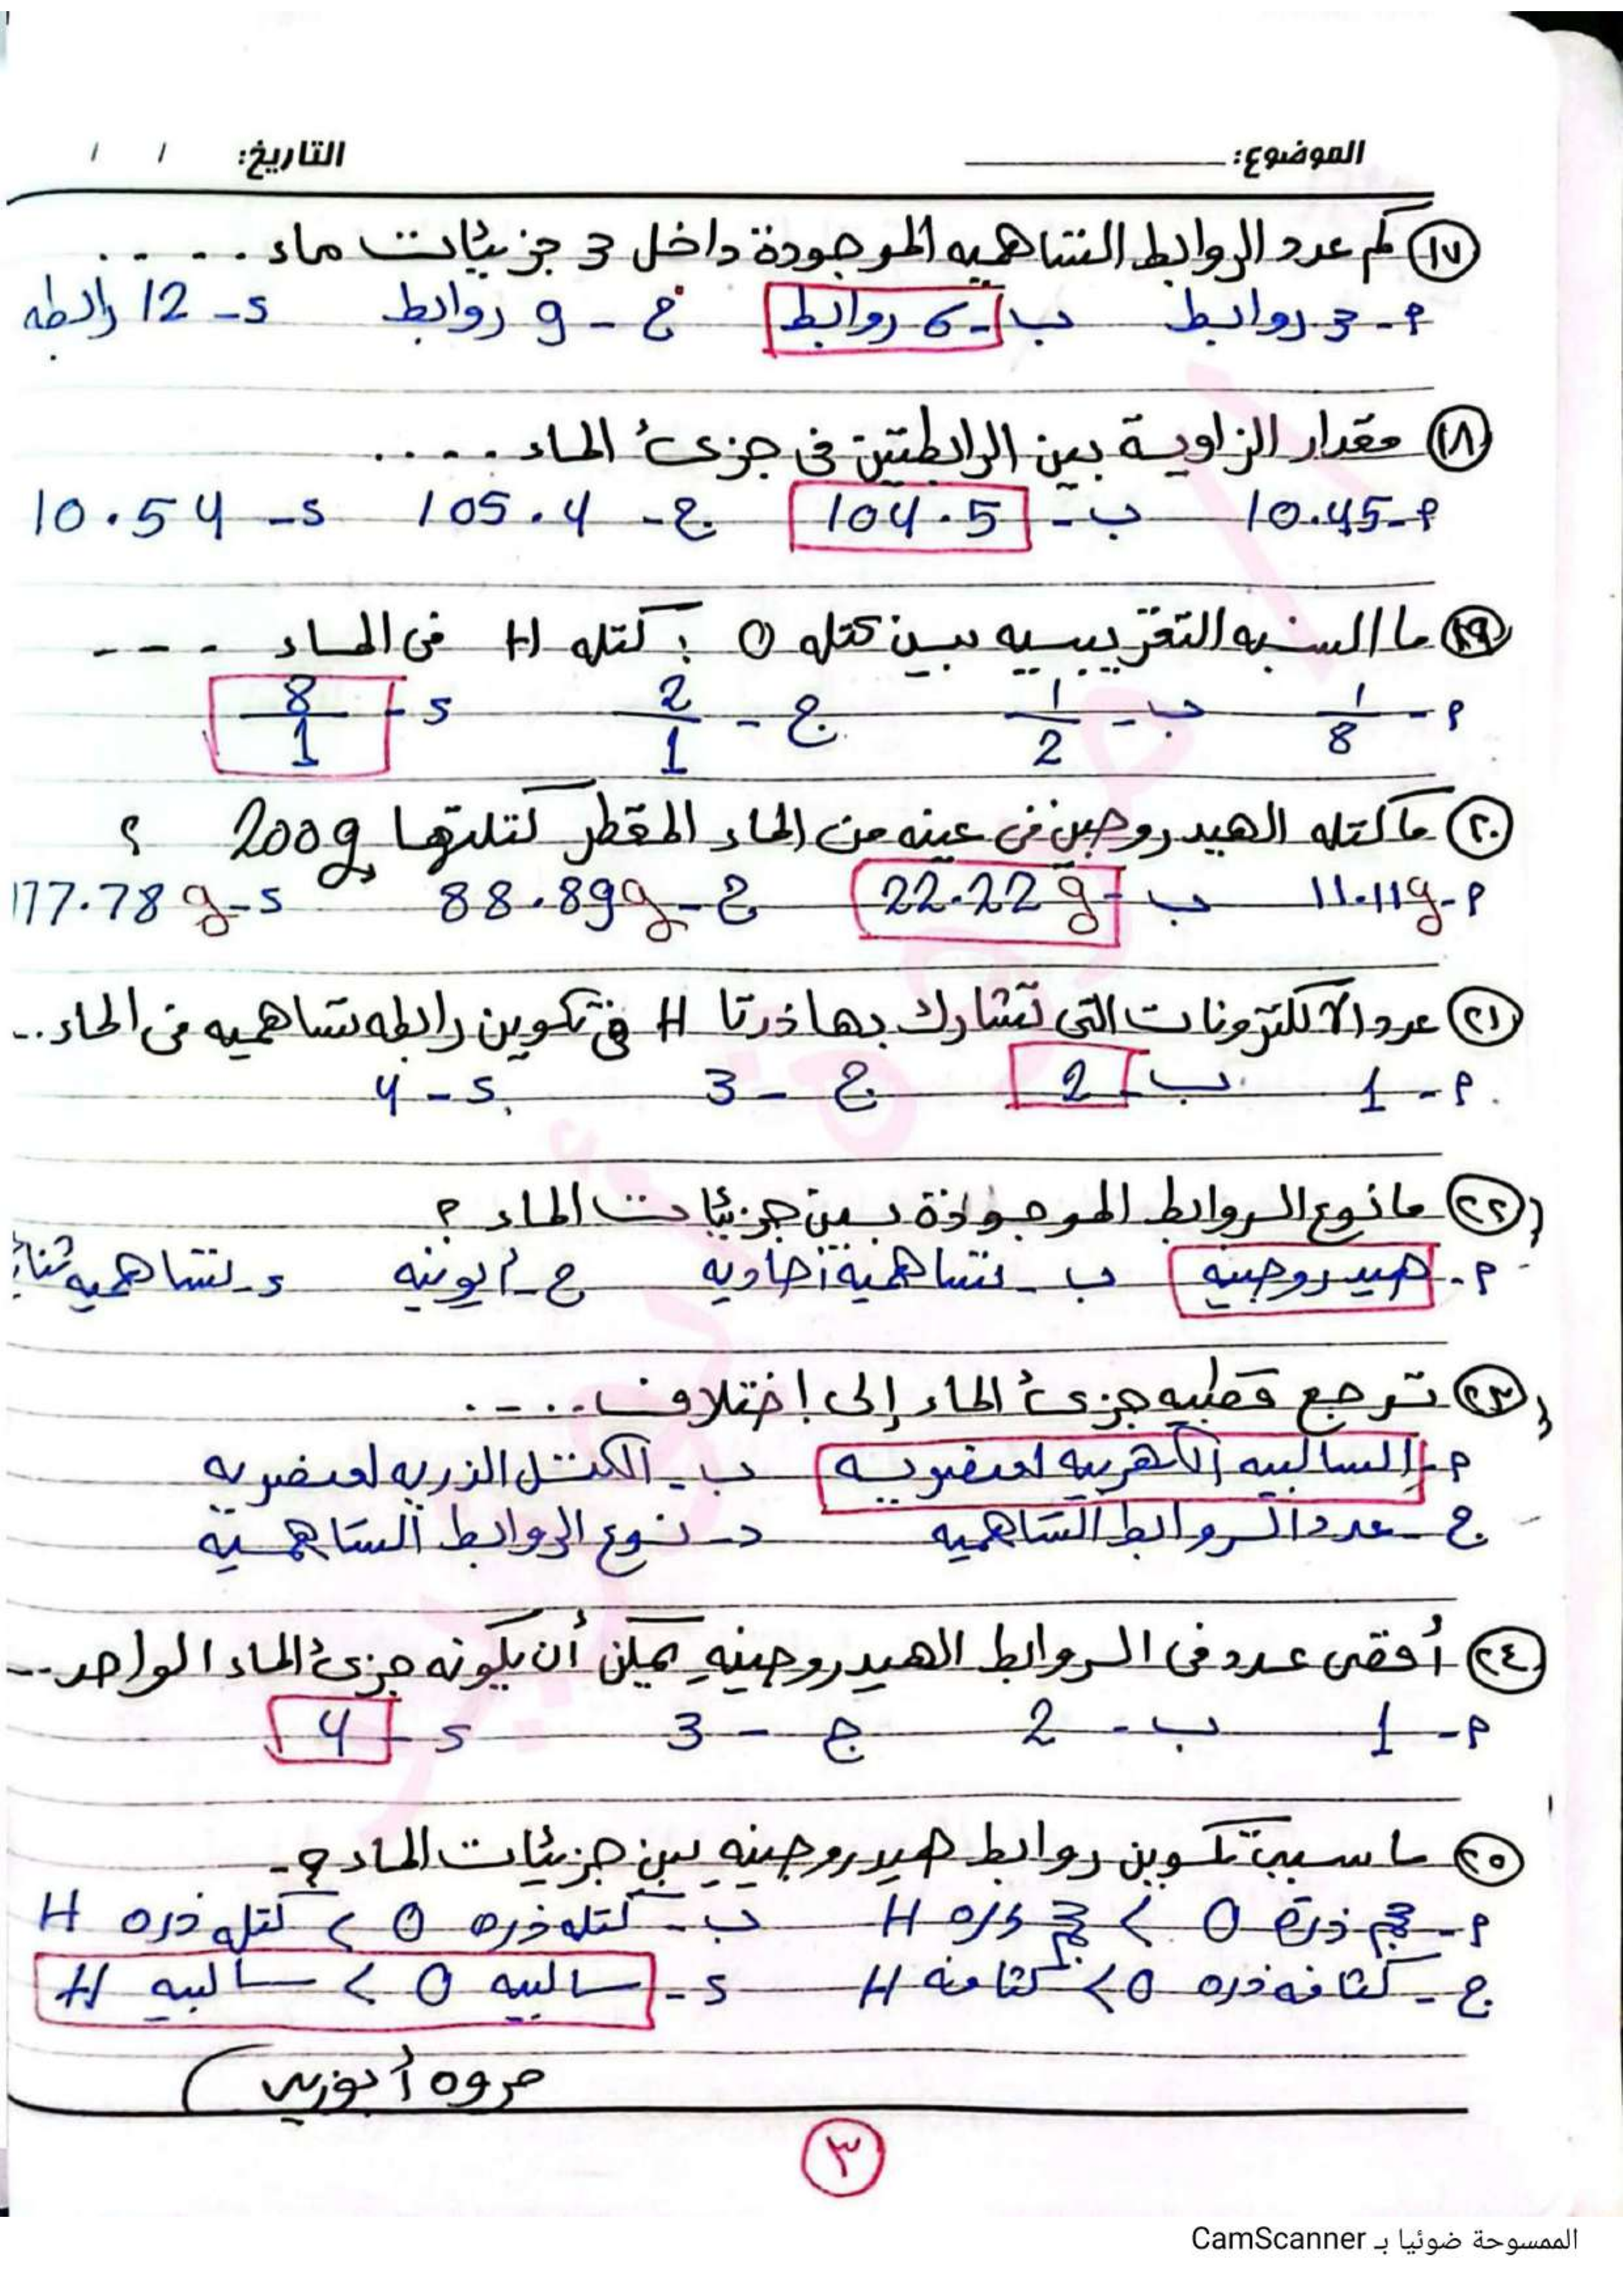 الموضوع: التاريخ: / /
١٧ كم عدد الروابط التساهميه الموجودة داخل 3 جزيئات ماء .....
م- 3 روابط ب- 6 روابط ج- 9 روابط د- 12 رابطه
١٨ مقدار الزاوية بين الرابطتين فى جزئ الماء ....
م- 10.45 ب- 104.5 ج- 105.4 د- 10.54
١٩ ما النسبه التقريبيه بين كتله O : كتله H فى الماء ---
م- 1/8 ب- 1/2 ج- 2/1 د- 8/1
٢٠ ما كتله الهيدروجين فى عينه من الماء المقطر كتلتها 200g ؟
م- 11.11g ب- 22.22g ج- 88.89g د- 177.78g
٢١ عدد الالكترونات التى تشارك بها ذرتا H فى تكوين رابطه تساهميه فى الماء ..
م- 1 ب- 2 ج- 3 د- 4
٢٢ ما نوع الروابط الموجودة بين جزيئات الماء ؟
م- هيدروجينيه ب- تساهمية أحاديه ج- أيونيه د- تساهميه
٢٣ ترجع قطبيه جزئ الماء إلى إختلاف ....
م- السالبيه الكهربيه لعنصريه ب- الكتل الذريه لعنصريه
ج- عدد الروابط التساهميه د- نوع الروابط التساهمية
٢٤ أقصى عدد فى الروابط الهيدروجينيه يمكن أن يكونه جزئ الماء الواحد ..
م- 1 ب- 2 ج- 3 د- 4
٢٥ ما سبب تكوين روابط هيدروجينيه بين جزيئات الماء ؟
م- حجم ذرة O < حجم ذره H ب- كتله ذره O < كتله ذره H
ج- كثافه ذره O < كثافه H د- سالبيه O < سالبيه H
مروه أبوزيد
٣
الممسوحة ضوئيا بـ CamScanner